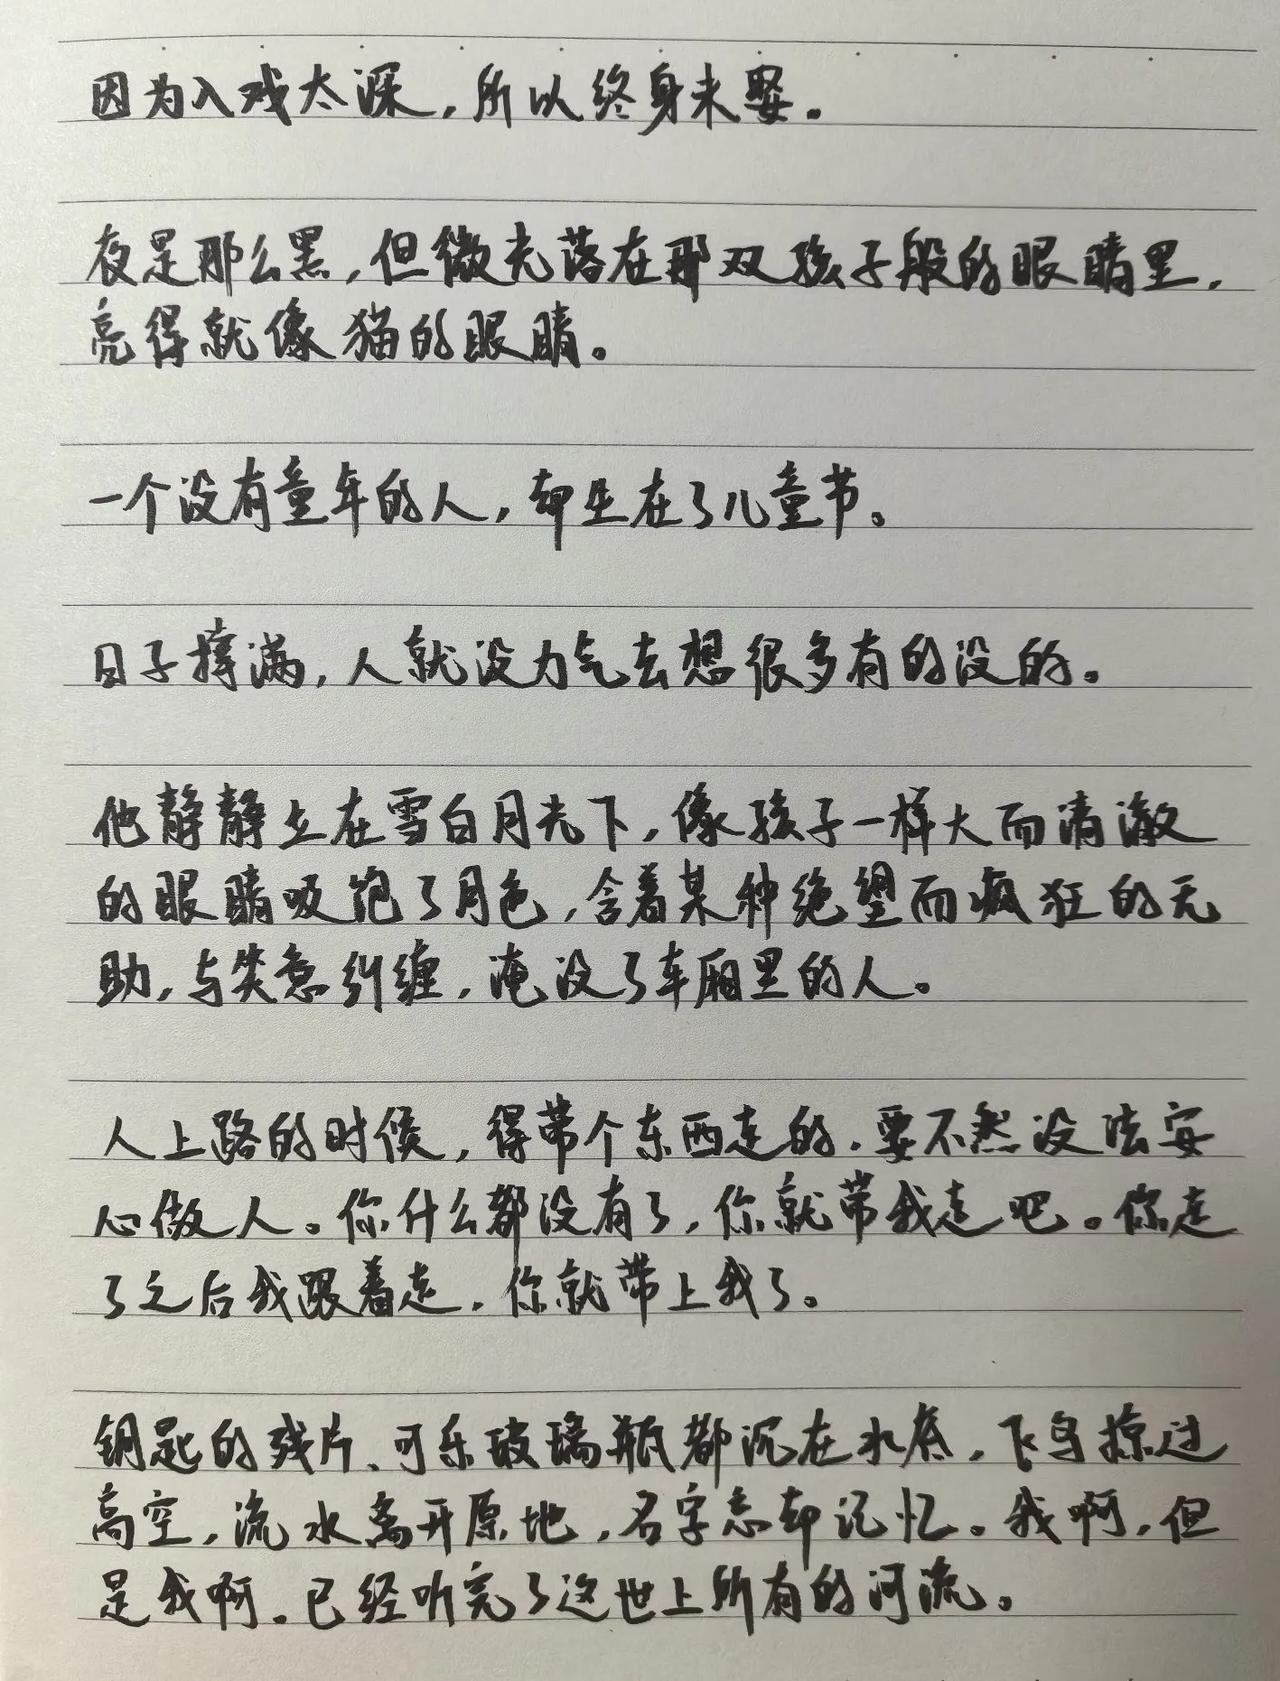 因为入戏太深，所以终身未娶。
夜是那么黑，但微光落在那双孩子般的眼睛里，
亮得就像猫的眼睛。
一个没有童年的人，却生在了儿童节。
日子撑满，人就没力气去想很多有的没的。
他静静立在雪白月光下，像孩子一样大而清澈
的眼睛吸饱了月色，含着某种绝望而疯狂的无
助，与笑意纠缠，淹没了车厢里的人。
人上路的时候，得带个东西走的，要不然没法安
心做人。你什么都没有了，你就带我走吧。你走
了之后我跟着走，你就带上我了。
钥匙的残片、可乐玻璃瓶都沉在水底，飞鸟掠过
高空，流水离开原地，名字忘却记忆。我啊，但
是我啊，已经听完了这世上所有的河流。